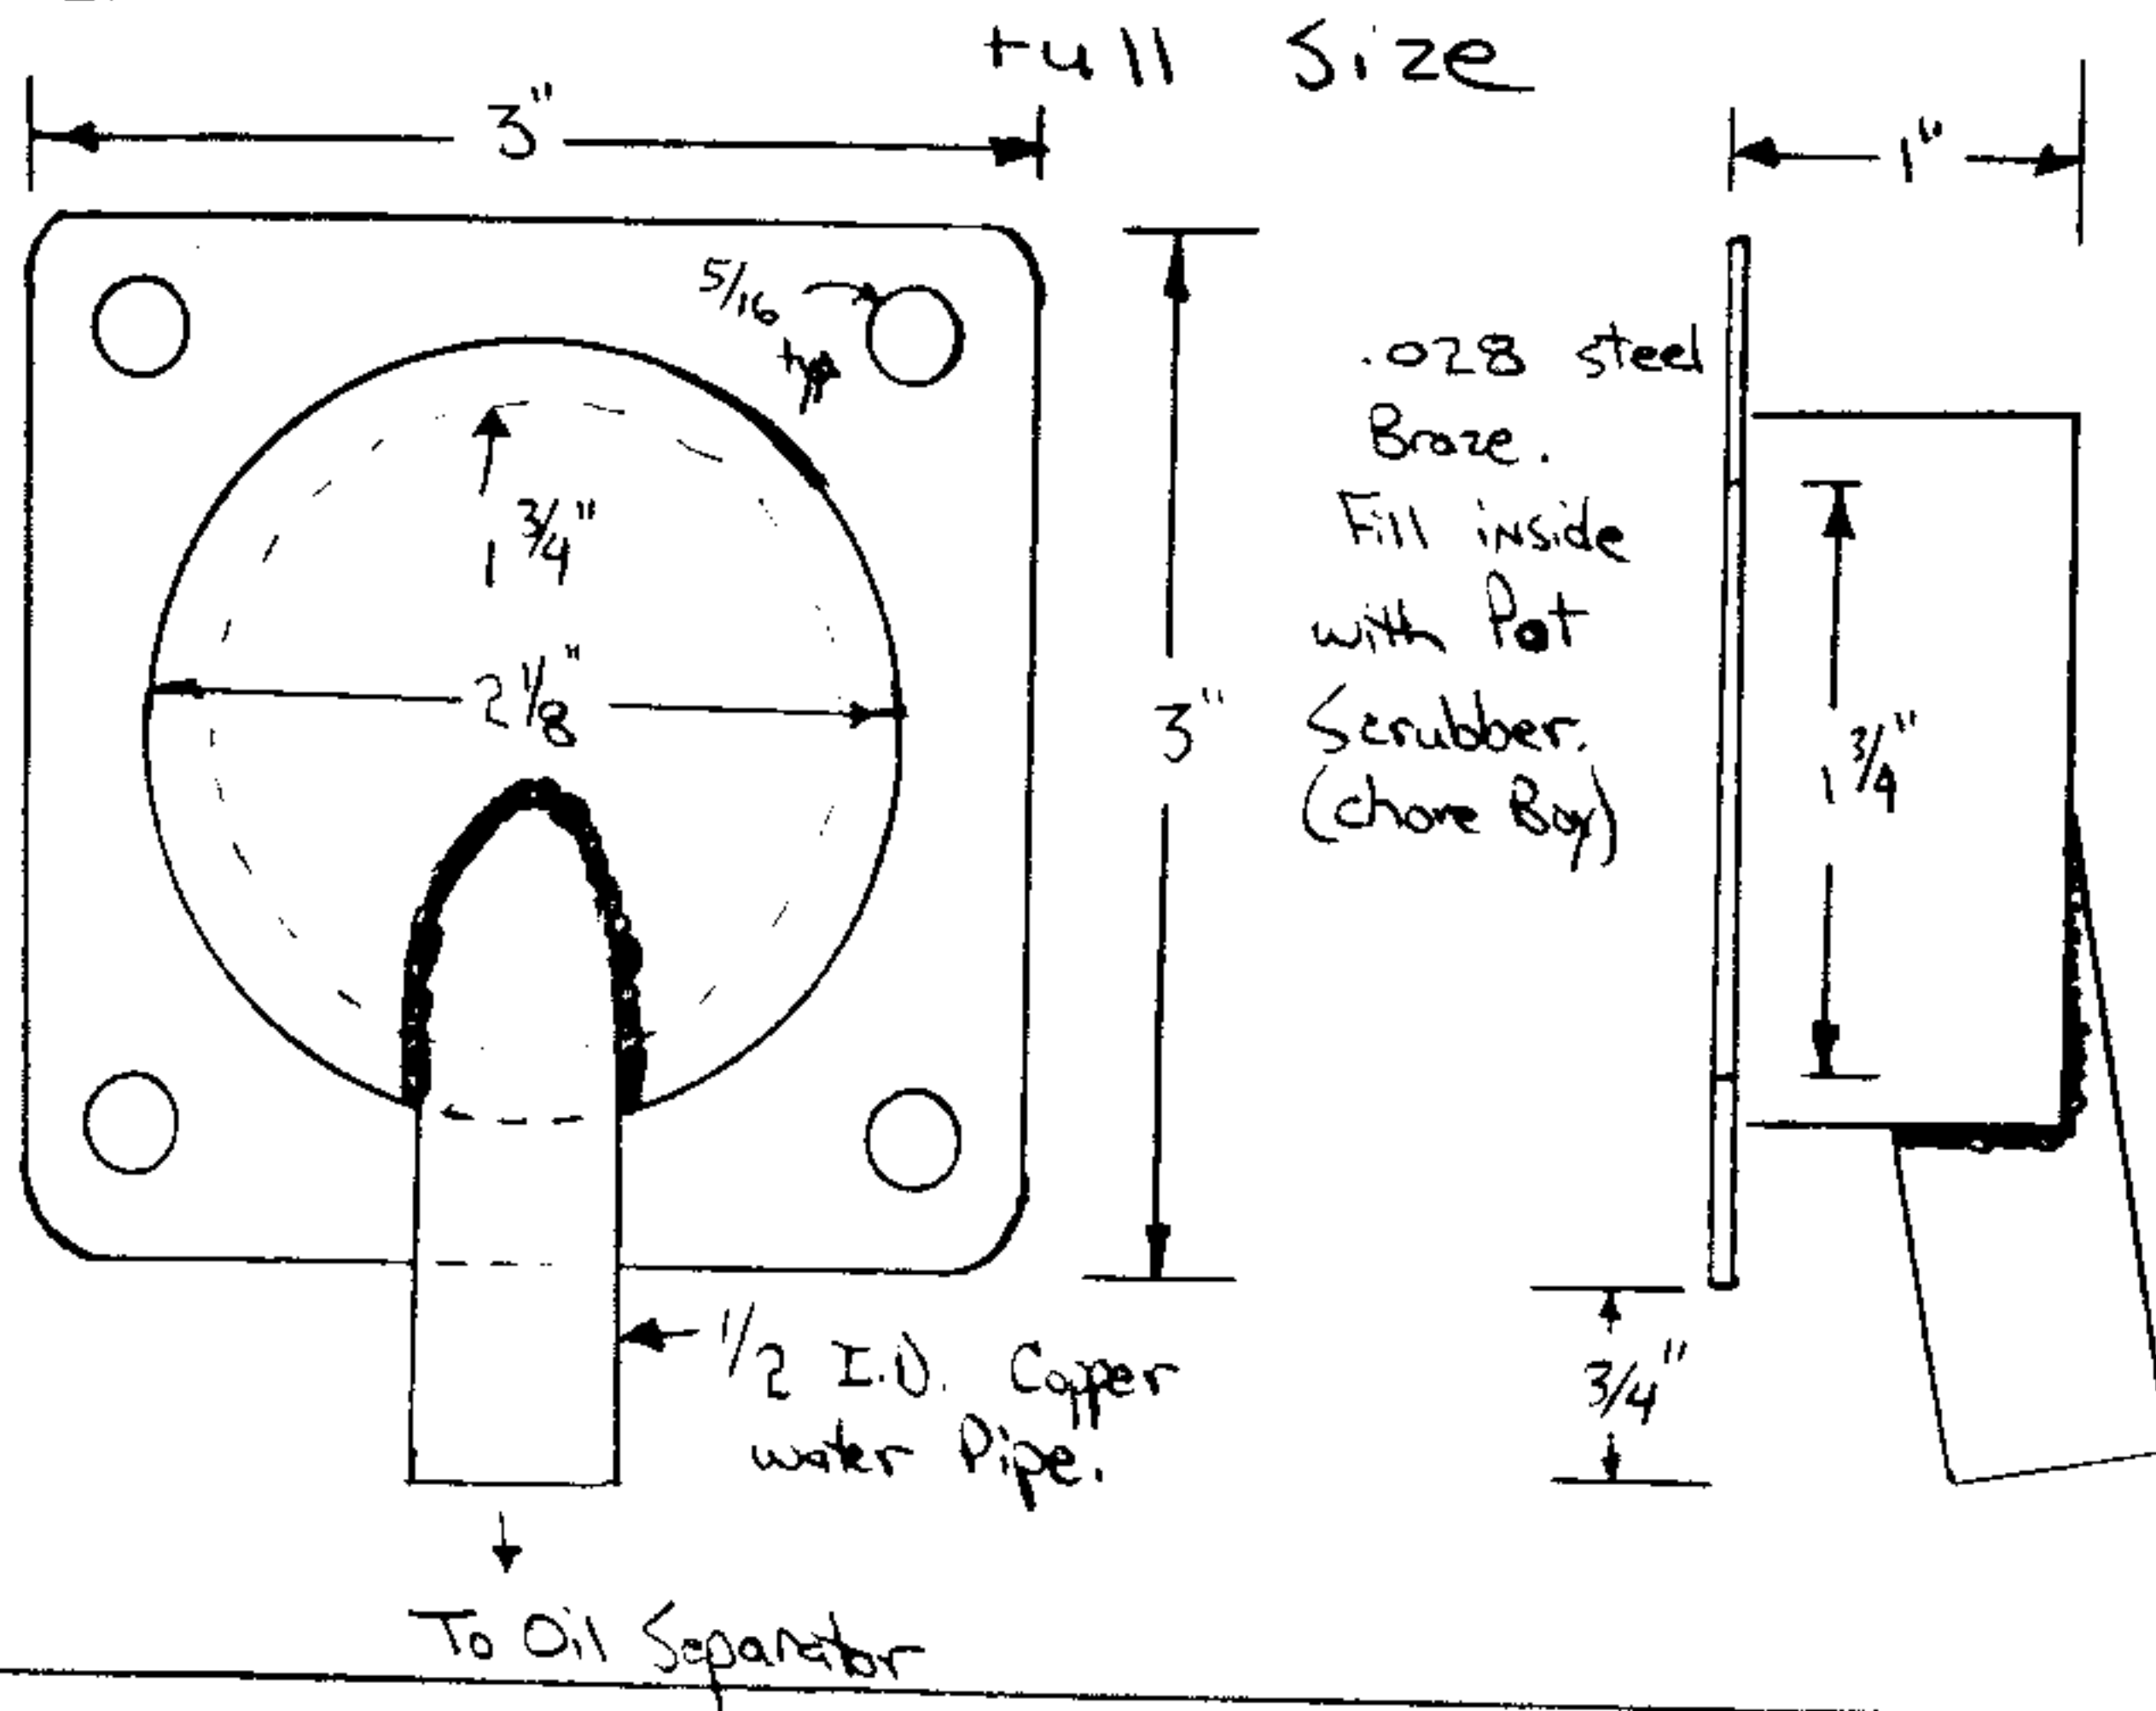 Full Size
3"
1"
5/16
typ
.028 steel
Braze.
Fill inside
with Pot
Scrubber.
(Chore Boy)
1 3/4"
2 1/8"
3"
1 3/4"
1/2 I.D. Copper
water Pipe.
3/4"
To Oil Separator